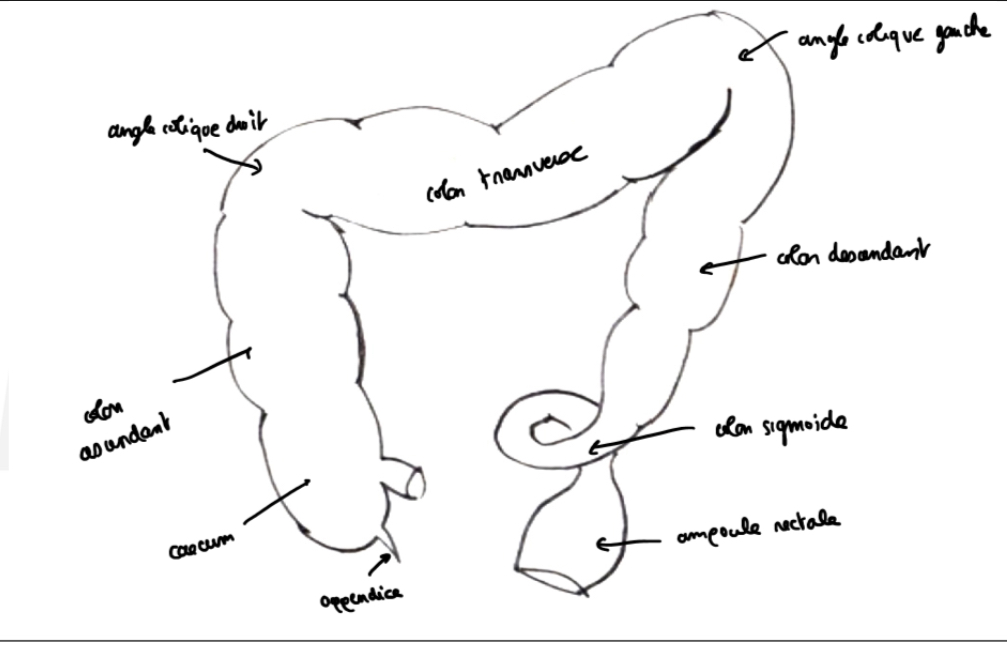 angle colique gauche
angle colique droit
colon transverse
colon descendant
colon
ascendant
colon sigmoide
caecum
ampoule rectale
appendice